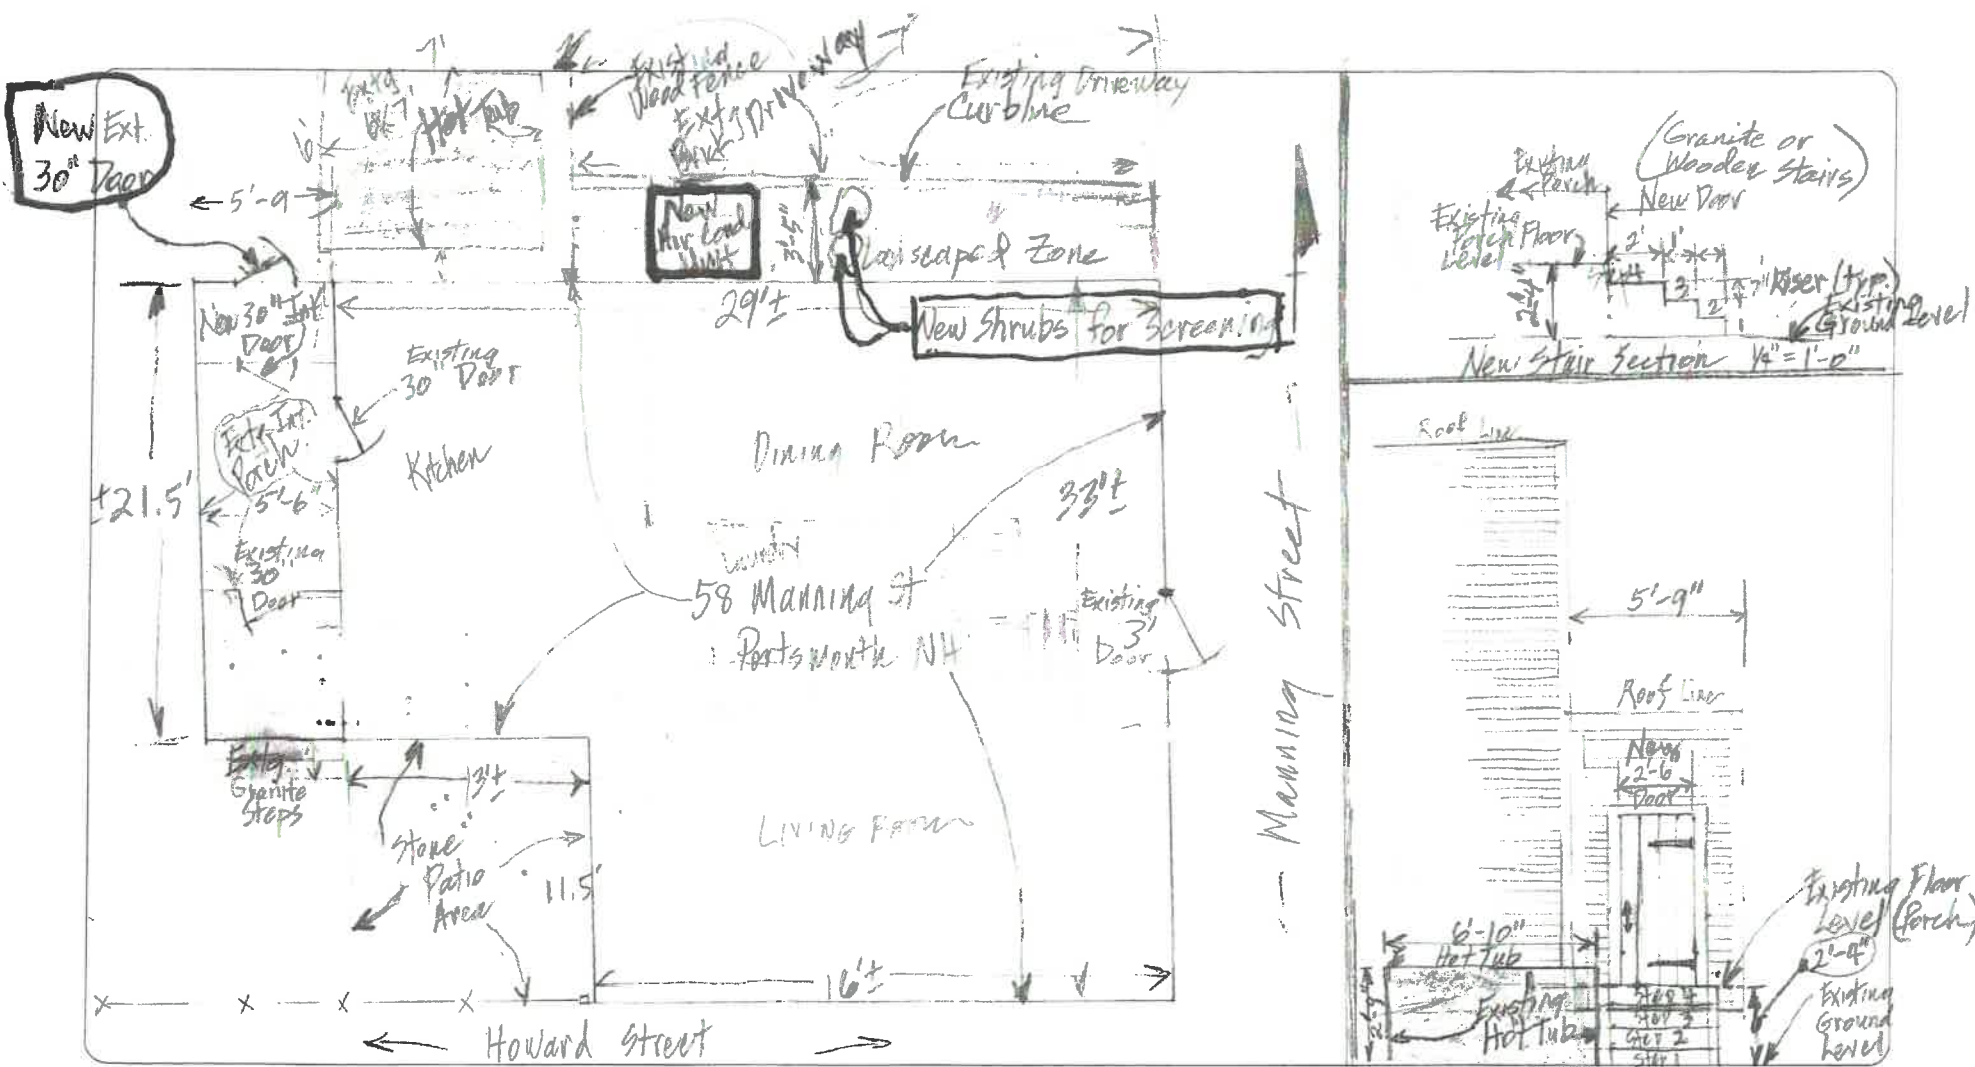 New Ext.
30" Door
5'-9
7'
6'
Extg
Hot Tub
Existing
Wood Fence
Extg Driveway
Brk
Existing Driveway
Curbline
New
Air Cond
Unit
3'-5"
Landscaped Zone
29'±
New Shrubs for Screening
New 30" Int.
Door
Existing
30" Door
Kitchen
Extg Int.
Porch
5'-6"
±21.5'
Existing
30"
Door
Dining Room
33'±
58 Manning St
Portsmouth NH
Existing
3'
Door
Extg.
Granite
Steps
13'±
Stone
Patio
Area
11.5'
Living Room
16'±
Howard Street
Manning Street
(Granite or
Wooden Stairs)
Existing
Porch
New Door
Existing
Porch Floor
Level
2'
1'
2'-4"
4
3
2
7" Riser (typ.)
Existing
Ground Level
New Stair Section 1/4"=1'-0"
Roof Line
5'-9"
Roof Line
New
2'-6
Door
Existing Floor
Level (Porch)
2'-4"
Existing
Ground
Level
6'-10"
Hot Tub
Existing
Hot Tub
Step 4
Step 3
Step 2
Step 1